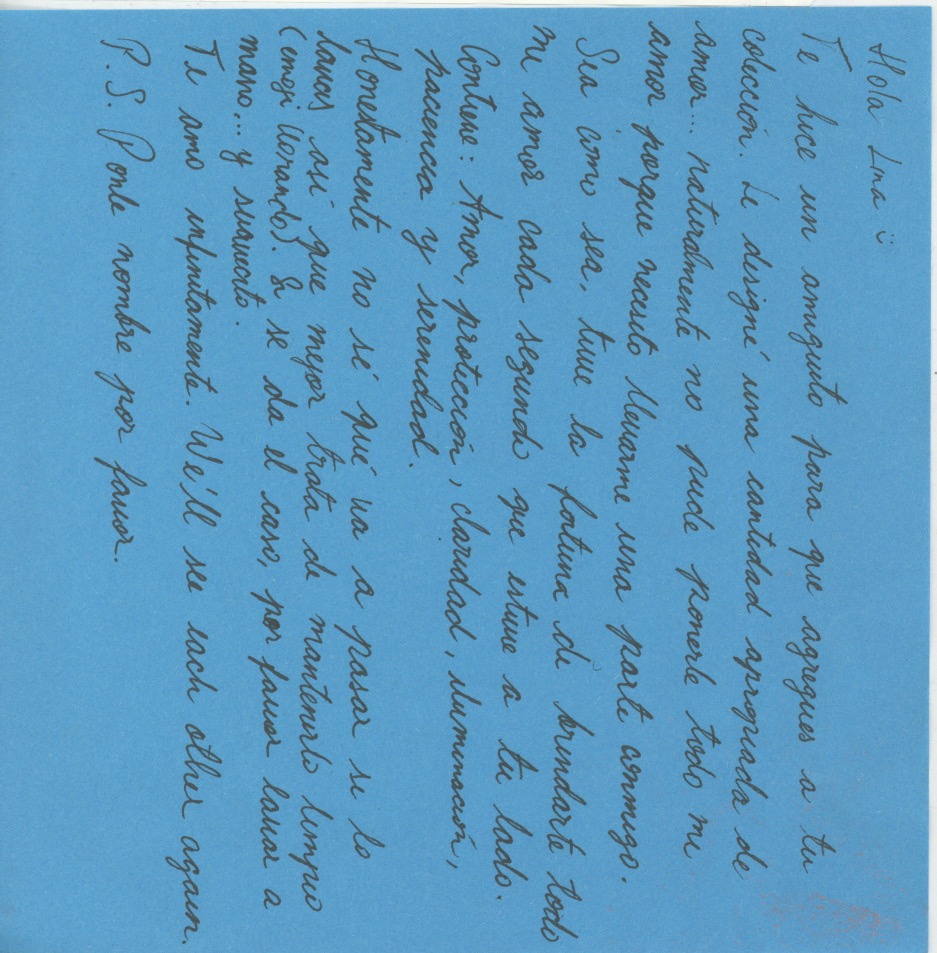 Hola Lina :)
Te hice un amiguito para que agregues a tu
colección. Le designé una cantidad apropiada de
amor... naturalmente no pude ponerle todo mi
amor porque necesito llevarme una parte conmigo.
Sea como sea, tuve la fortuna de brindarte todo
mi amor cada segundo que estuve a tu lado.
Contiene: Amor, protección, claridad, iluminación,
paciencia y serenidad.
Honestamente no sé qué va a pasar si lo
lavas así que mejor trata de mantenerlo limpio
(emoji llorando). Si se da el caso, por favor lavar a
mano... y suavecito.
Te amo infinitamente. We'll see each other again.
P.S. Ponle nombre por favor.